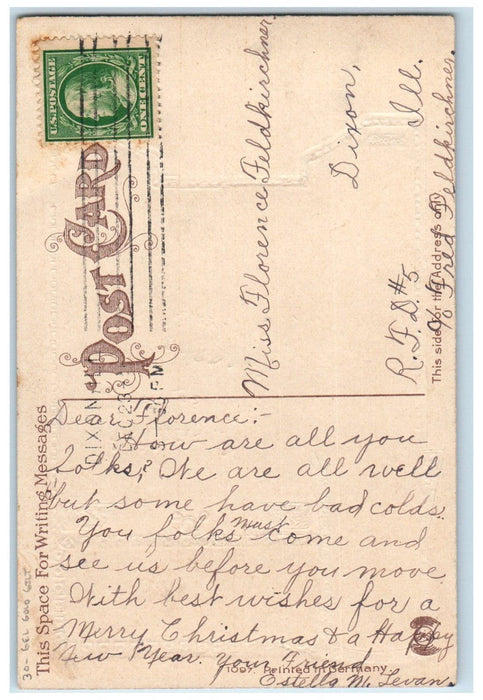 This Space For Writing Messages
POST CARD
U.S. POSTAGE
ONE CENT
DIXON
DEC 23
PM
Dear Florence:-
How are all you
folks? We are all well
but some have bad colds.
You folks must come and
see us before you move.
With best wishes for a
Merry Christmas & a Happy
New Year. Your Friend
Estella M. Levan.
Miss Florence Feldkirchner
Dixon,
Ill.
R.F.D. #5
℅ Fred Feldkirchner.
This side for the Address only
Printed in Germany